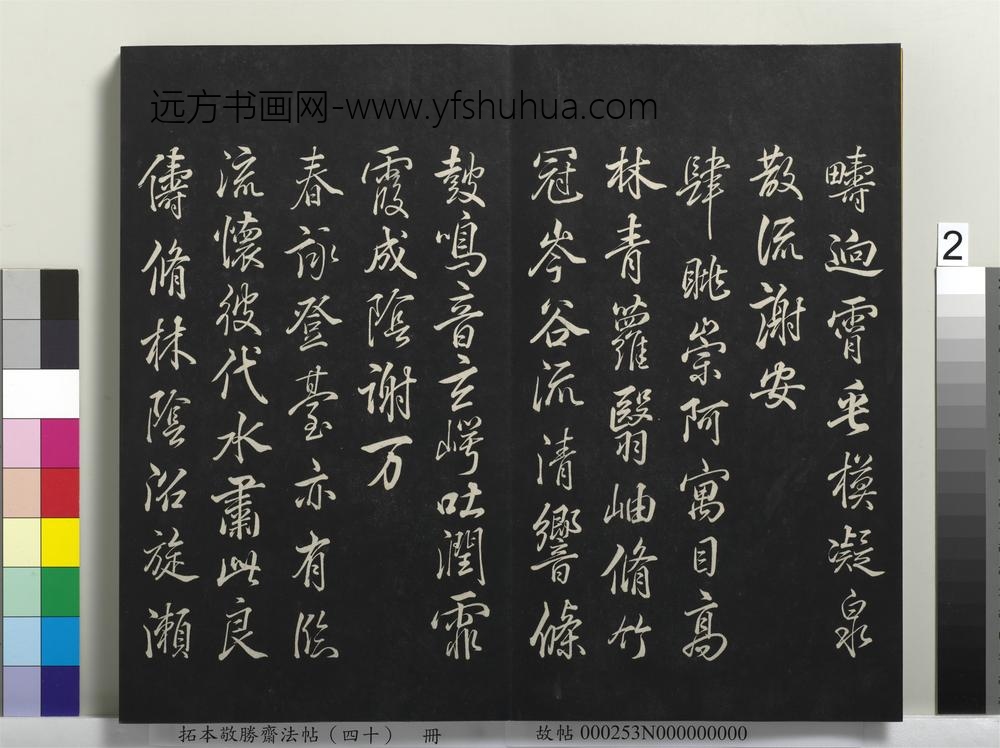 远方书画网-www.yfshuhua.com
疇逈霄垂模凝泉
散流謝安
肆眺崇阿寓目高
林青蘿翳岫脩竹
冠岑谷流清響條
鼓鳴音玄崿吐潤霏
霞成陰謝万
春詠登臺亦有臨
流懷彼代水肅此良
儔脩林陰沼旋瀨
2
拓本敬勝齋法帖（四十） 冊
故帖 000253N000000000